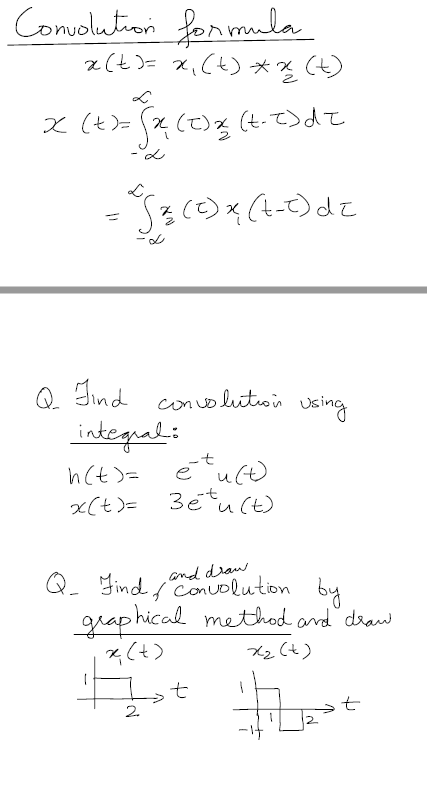 Convolution formula
x(t)= x₁(t) * x₂(t)
x(t)= ∫_{-∞}^{∞} x₁(τ) x₂(t-τ) dτ
= ∫_{-∞}^{∞} x₂(τ) x₁(t-τ) dτ
Q_ Find convolution using
integral:
h(t)= e^{-t}u(t)
x(t)= 3e^{-t}u(t)
Q_ Find, and draw convolution by
graphical method and draw
x₁(t) x₂(t)
1 2 t
1 -1 1 2 t